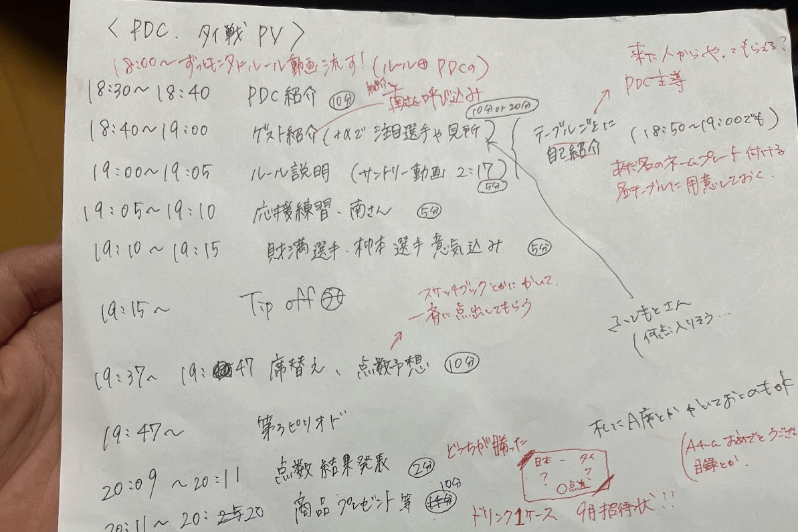 〈 PDC. タイ戦 PV 〉
18:00〜 ルール動画流す！(ルール PDCの)
来た人から
PDC主導
18:30〜18:40 PDC紹介 10分 南さん呼び込み
18:40〜19:00 ゲスト紹介 (+αで 注目選手や見所) 10分or20分
テーブルごとに
自己紹介
(18:50〜19:00でも)
あだ名のネームプレート付ける
各テーブルに用意しておく。
19:00〜19:05 ルール説明 (サントリー動画 2:17) 5分
19:05〜19:10 応援練習・南さん 5分
19:10〜19:15 財満選手・柳本選手意気込み 5分
19:15〜 Tip off
スケッチブックとかにかいて、
一斉に点出してもらう
さん
(何点入りそう…
19:37〜 19:47 席替え、点数予想 10分
札にA席とかかいておくのもok
19:47〜 第3ピリオド
20:09〜20:11 点数結果発表 2分
どっちが勝った
日本 - タイ
? ?
○点差
(Aチームおめでとうござい
目録とか。
20:11〜20: 20 商品プレゼント等 10分
ドリンク1ケース 9月招待状!!